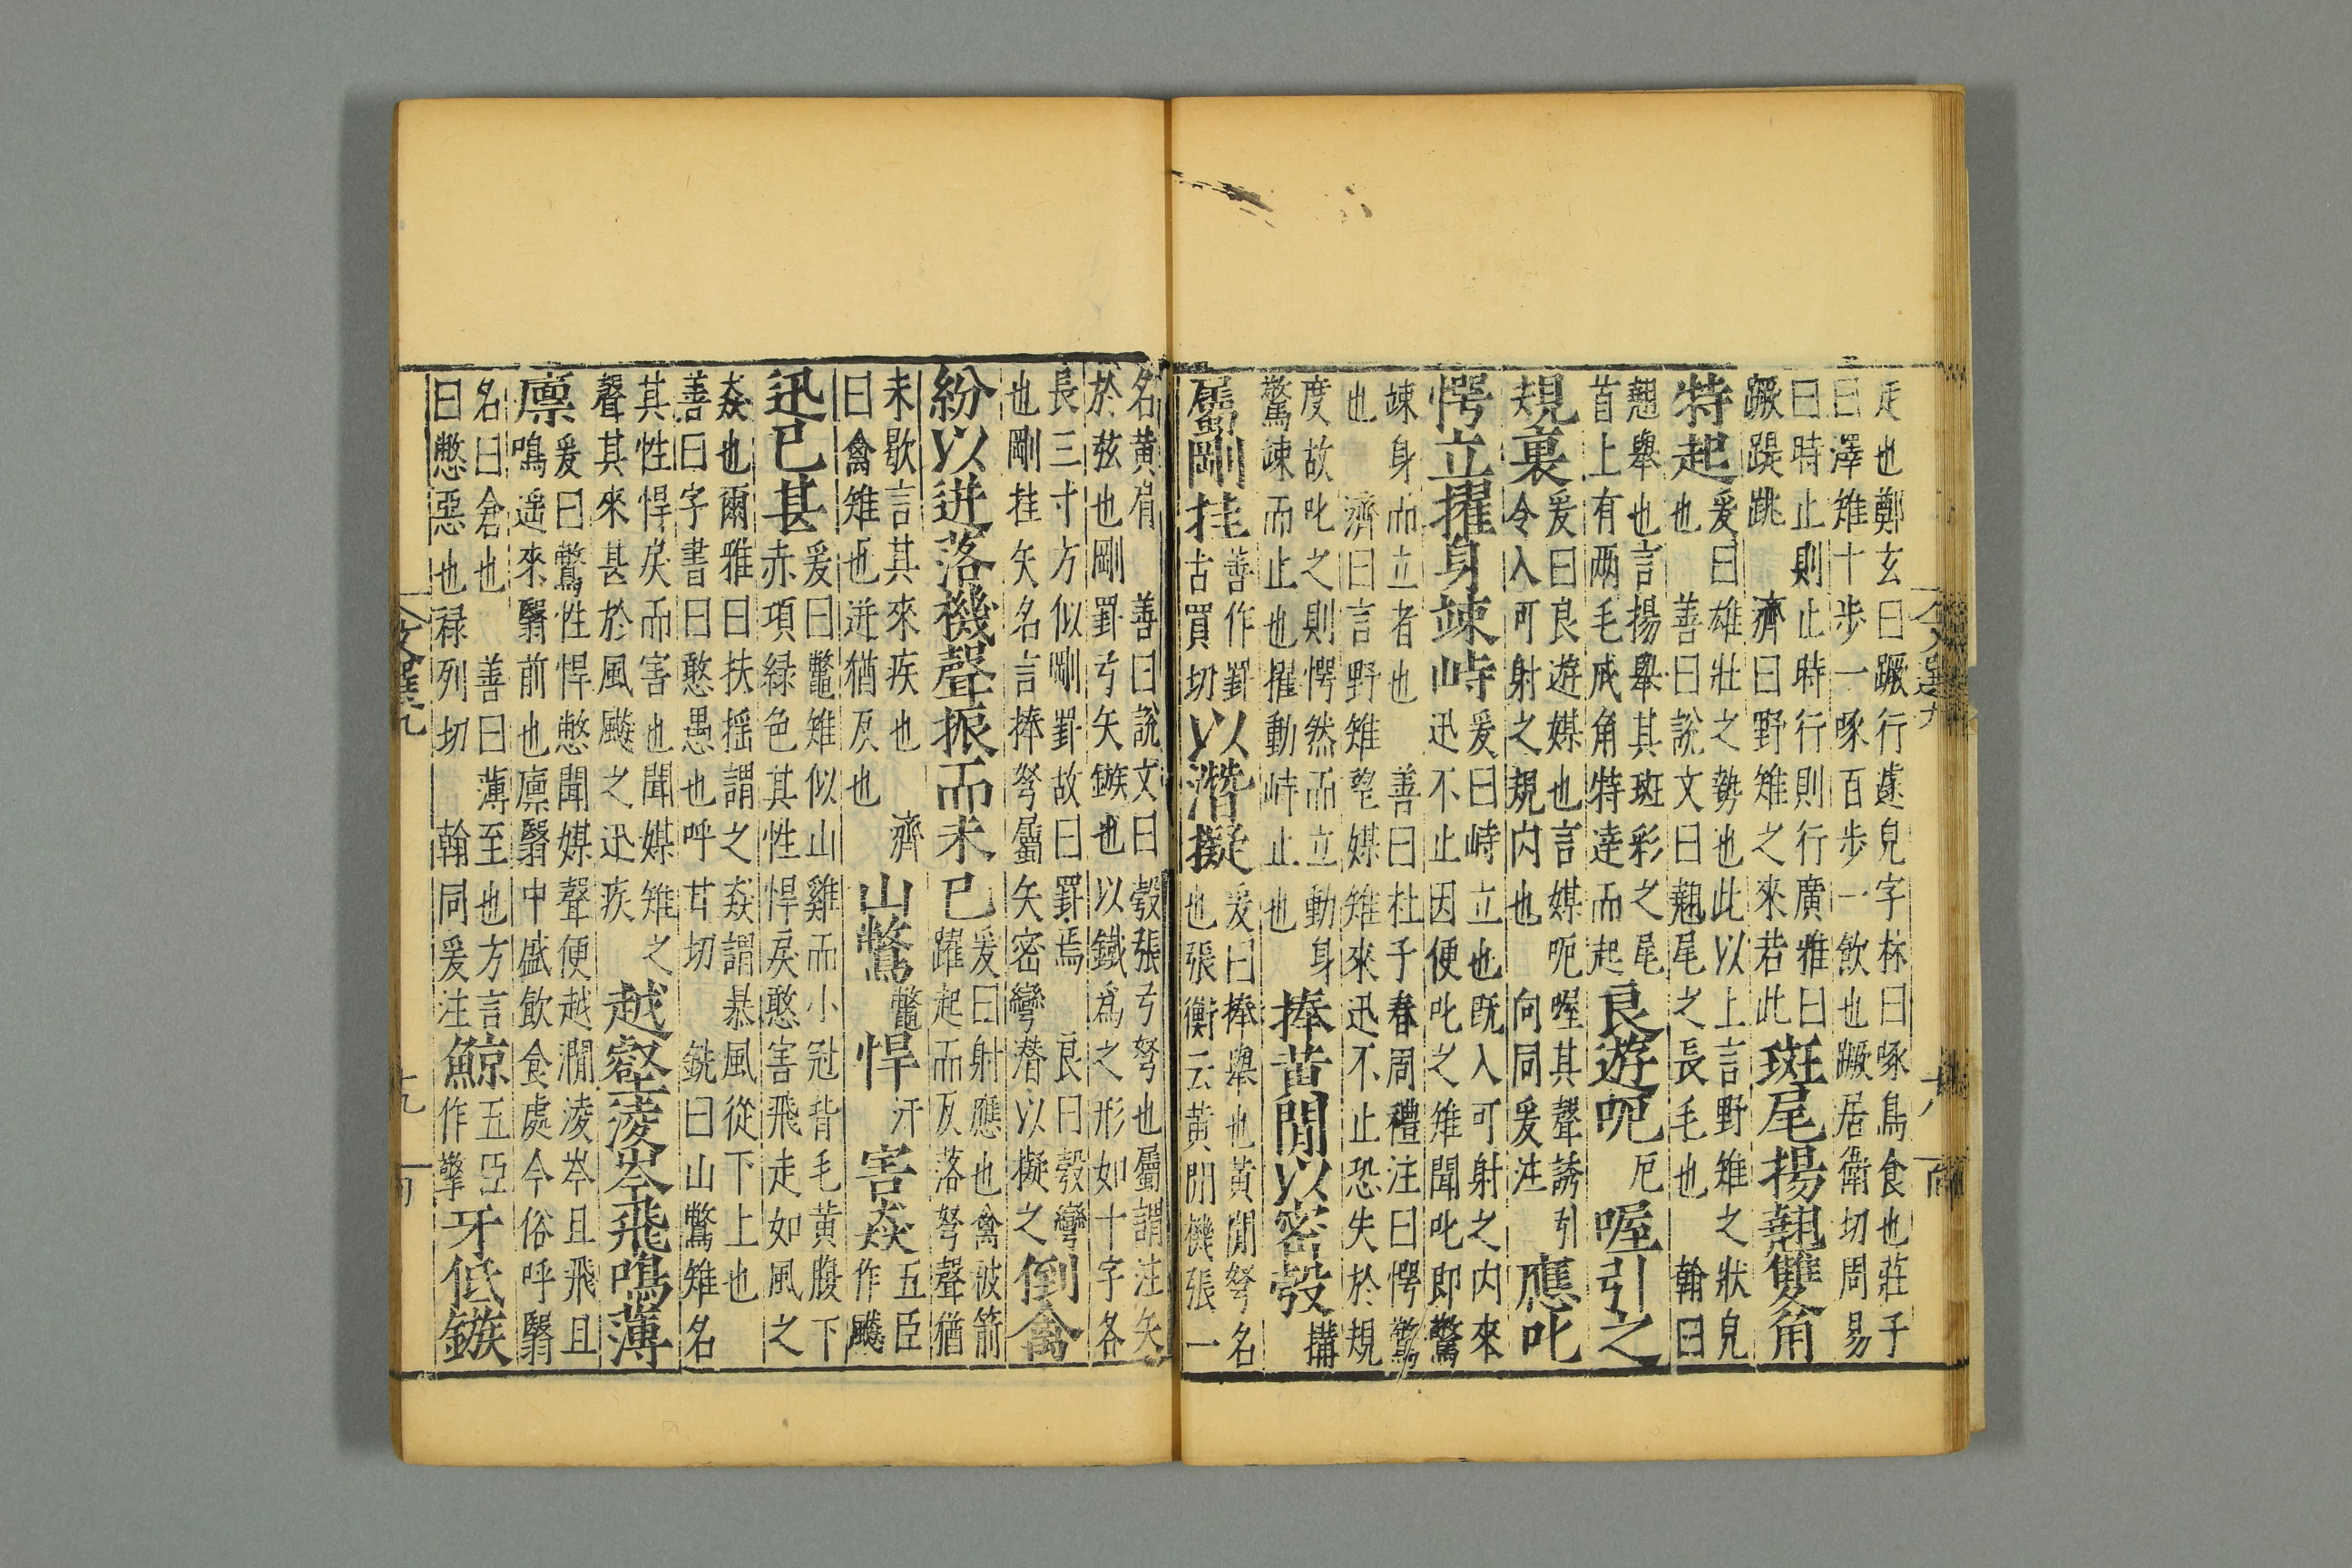 走也鄭玄曰蹶行遽皃字林曰啄鳥食也莊子
曰澤雉十步一啄百步一飲也蹶居衛切周易
曰時止則止時行則行廣雅曰
蹶踶跳 濟曰野雉之來若此
斑尾揚翹雙角
特起
爰曰雄壯之勢也此以上言野雉之狀皃
也 善曰說文曰翹尾之長毛也 翰曰
翹舉也言揚舉其斑彩之尾
首上有兩毛成角特達而起
良遊呃厄喔引之
規裏
爰曰良遊媒也言媒呃喔其聲誘引
令入可射之規内也 向同爰注
應叱
愕立擢身竦峙
爰曰峙立也既入可射之内來
迅不止因便叱之雉聞叱即驚
竦身而立者也 善曰杜子春周禮注曰愕驚
也 濟曰言野雉望媒雉來迅不止恐失於規
度故叱之則愕然而立動身
驚竦而止也擢動峙止也
捧黃閒以密彀搆
屬剛挂
善作罫
古買切
以潛擬
爰曰捧舉也黃閒弩名
也張衡云黃閒機張一
文選九 十八
名黃肩 善曰說文曰彀張弓弩也屬謂注矢
於弦也剛罫弓矢鏃也以鐵為之形如十字各
長三寸方似剛罫故曰罫焉 良曰彀彎
也剛挂矢名言捧弩屬矢密彎潛以擬之
倒禽
紛以迸落機聲振而未已
爰曰射應也禽被箭
躍起而反落弩聲猶
未歇言其來疾也 濟
曰禽雉也迸猶反也
山鷩鼈悍汗害猋
五臣
作飈
迅已甚
爰曰鼈雉似山雞而小冠背毛黃腹下
赤項緑色其性悍戾憨害飛走如風之
猋也爾雅曰扶搖謂之猋謂暴風從下上也
善曰字書曰憨愚也呼甘切 銑曰山鷩雉名
其性悍戾而害也聞媒雉之
聲其來甚於風飈之迅疾
越壑凌岑飛鳴薄
廩
爰曰鷩性悍憋聞媒聲便越澗凌岑且飛且
鳴遥來翳前也廩翳中盛飲食處今俗呼翳
名曰倉也 善曰薄至也方言
曰憋惡也祿列切 翰同爰注
鯨
五臣
作擎
牙低鏃
文選九 十九